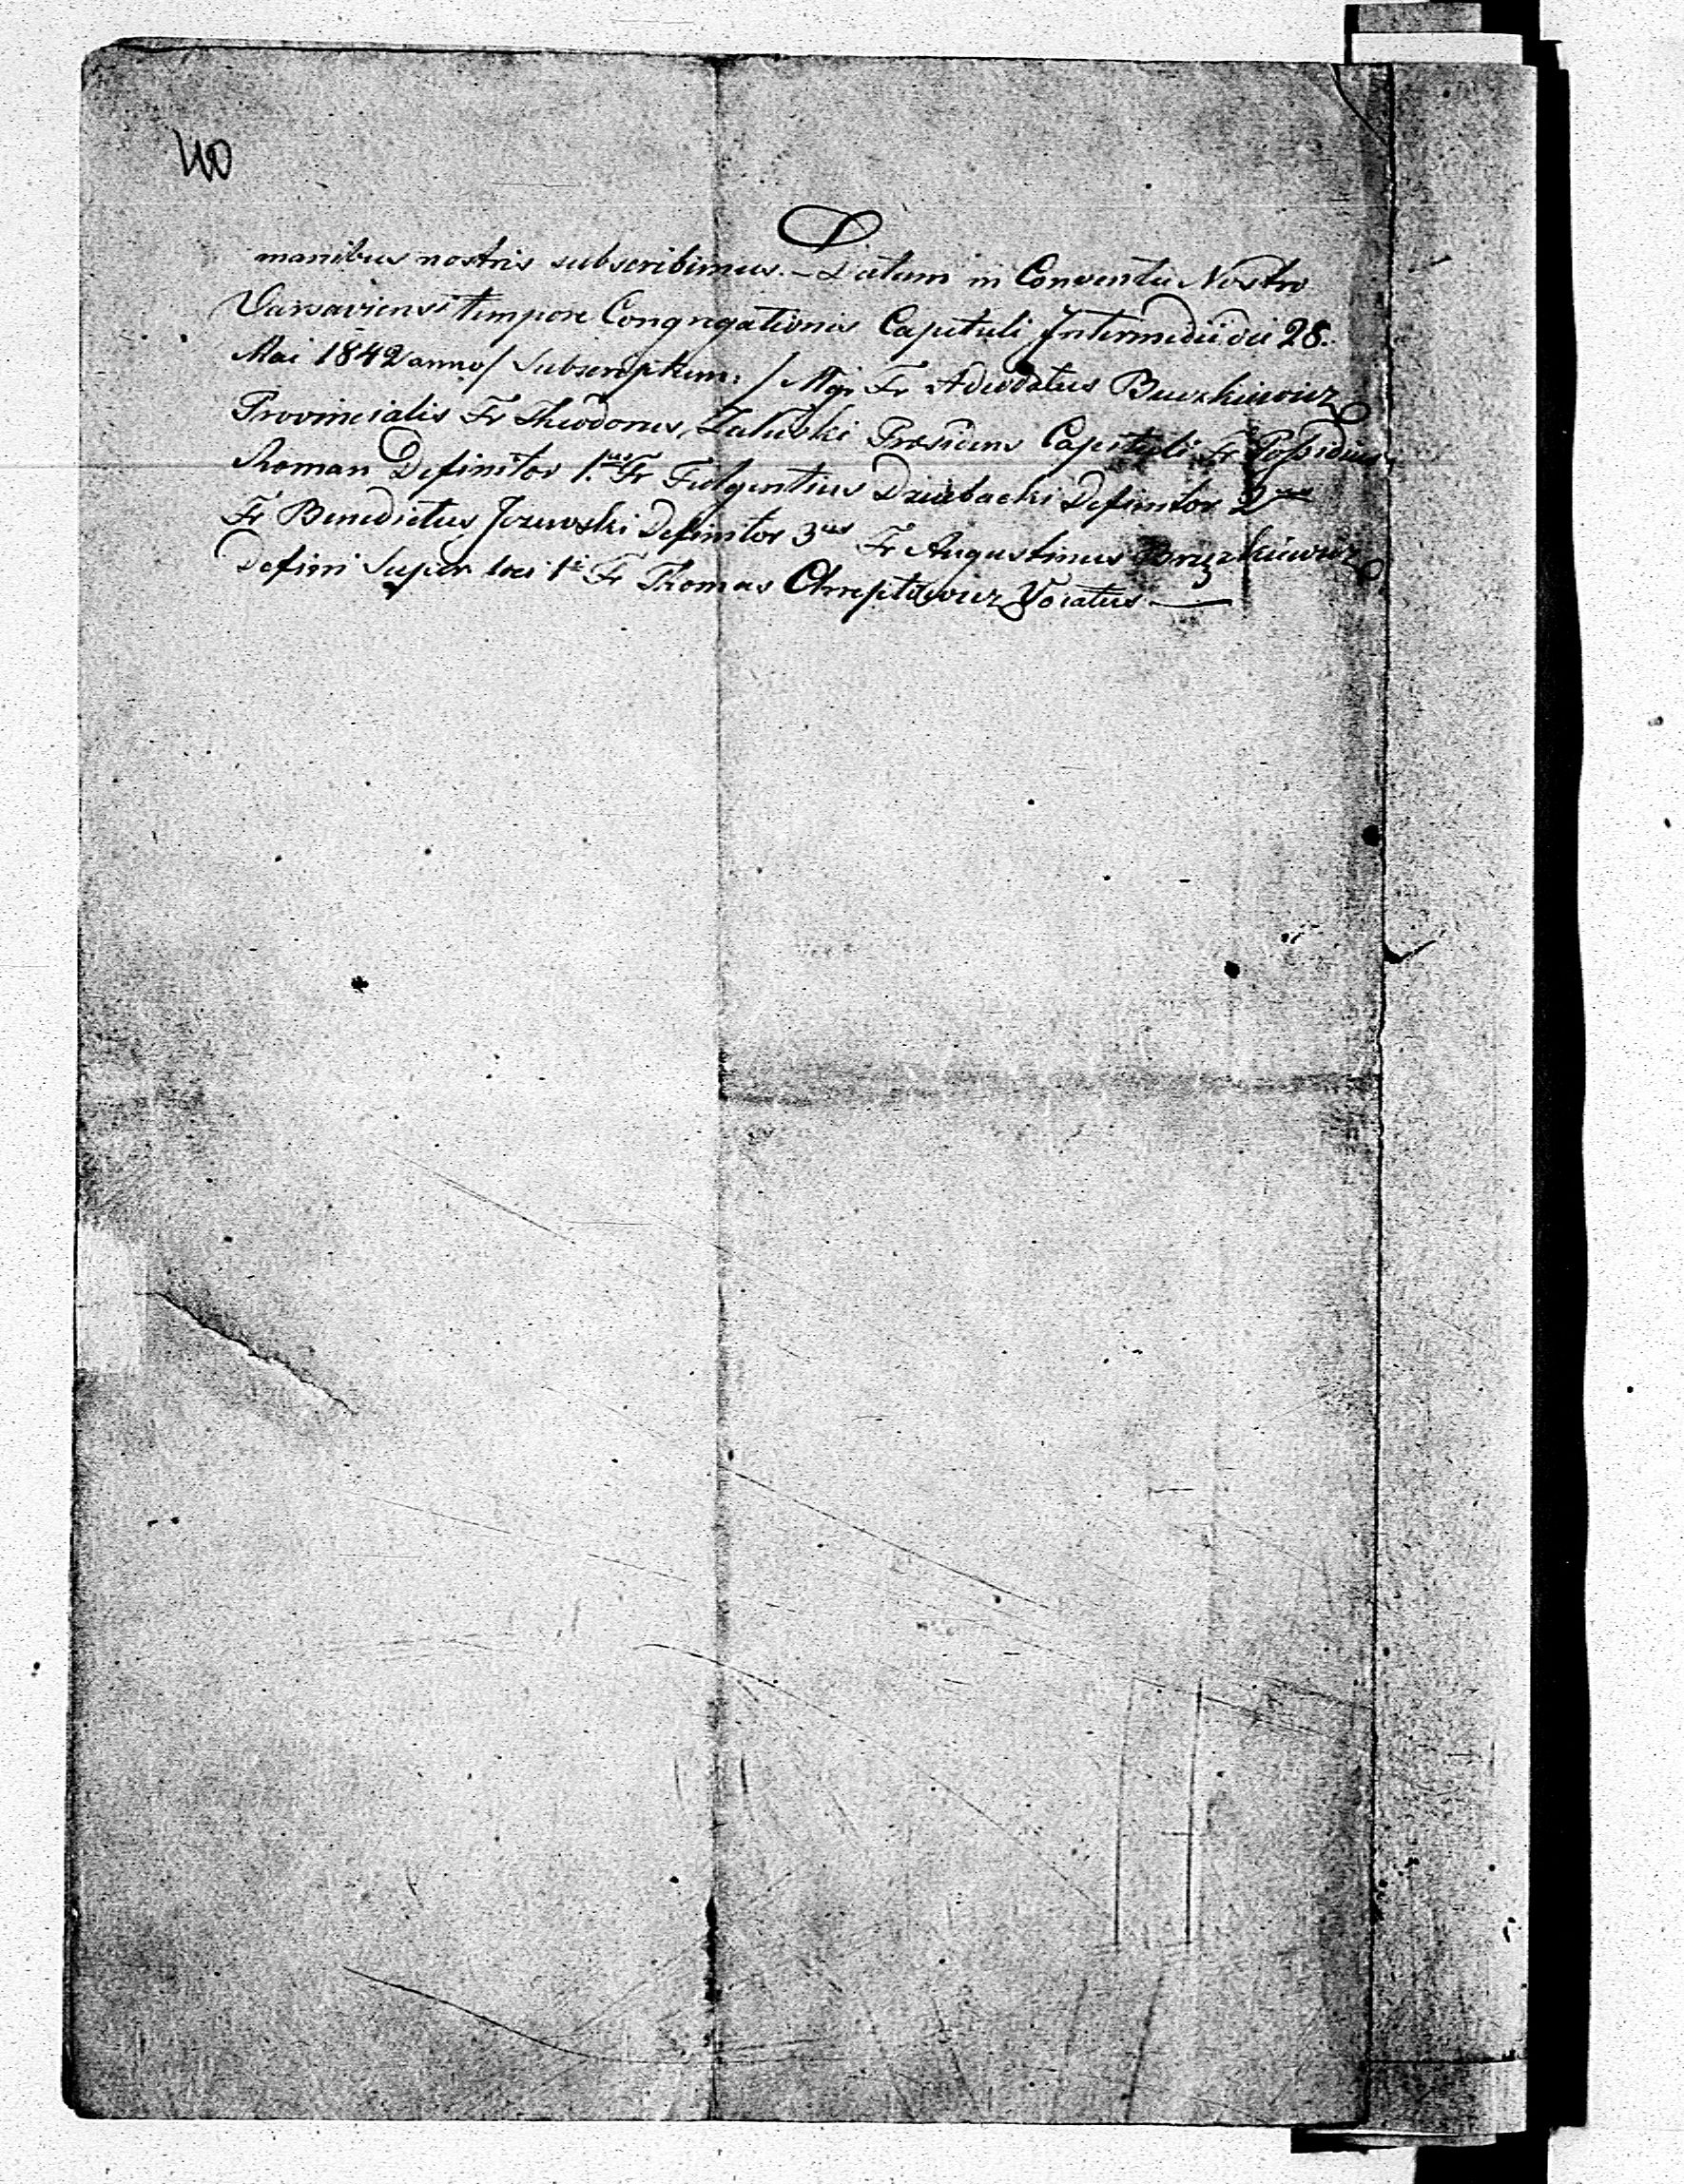 40
manibus nostris subscribimus. – Datum in Conventu Nostro
Varsaviensi tempore Congregationis Capituli Intermedii die 28.
Mai 1842 anno / Subscriptum: / Mgr Fr Adeodatus
Provincialis Fr Theodorus Załuski Presidens Capituli Fr Possidius
Roman Definitor 1.us Fr Fulgentius Dziubacki Definitor 2
Fr Benedictus Jozewski Definitor 3us Fr Augustinus
Defini Super loci 1i Fr Thomas Chreptowicz Vocatus —